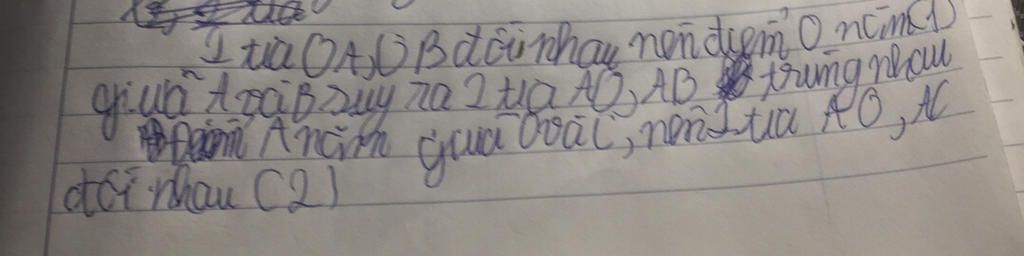 tia
2 tia OA, OB đối nhau nên điểm O nằm (1)
giữa A và B suy ra 2 tia AO, AB trùng nhau
Điểm A nằm giữa O và C, nên 2 tia AO, AC
đối nhau (2)